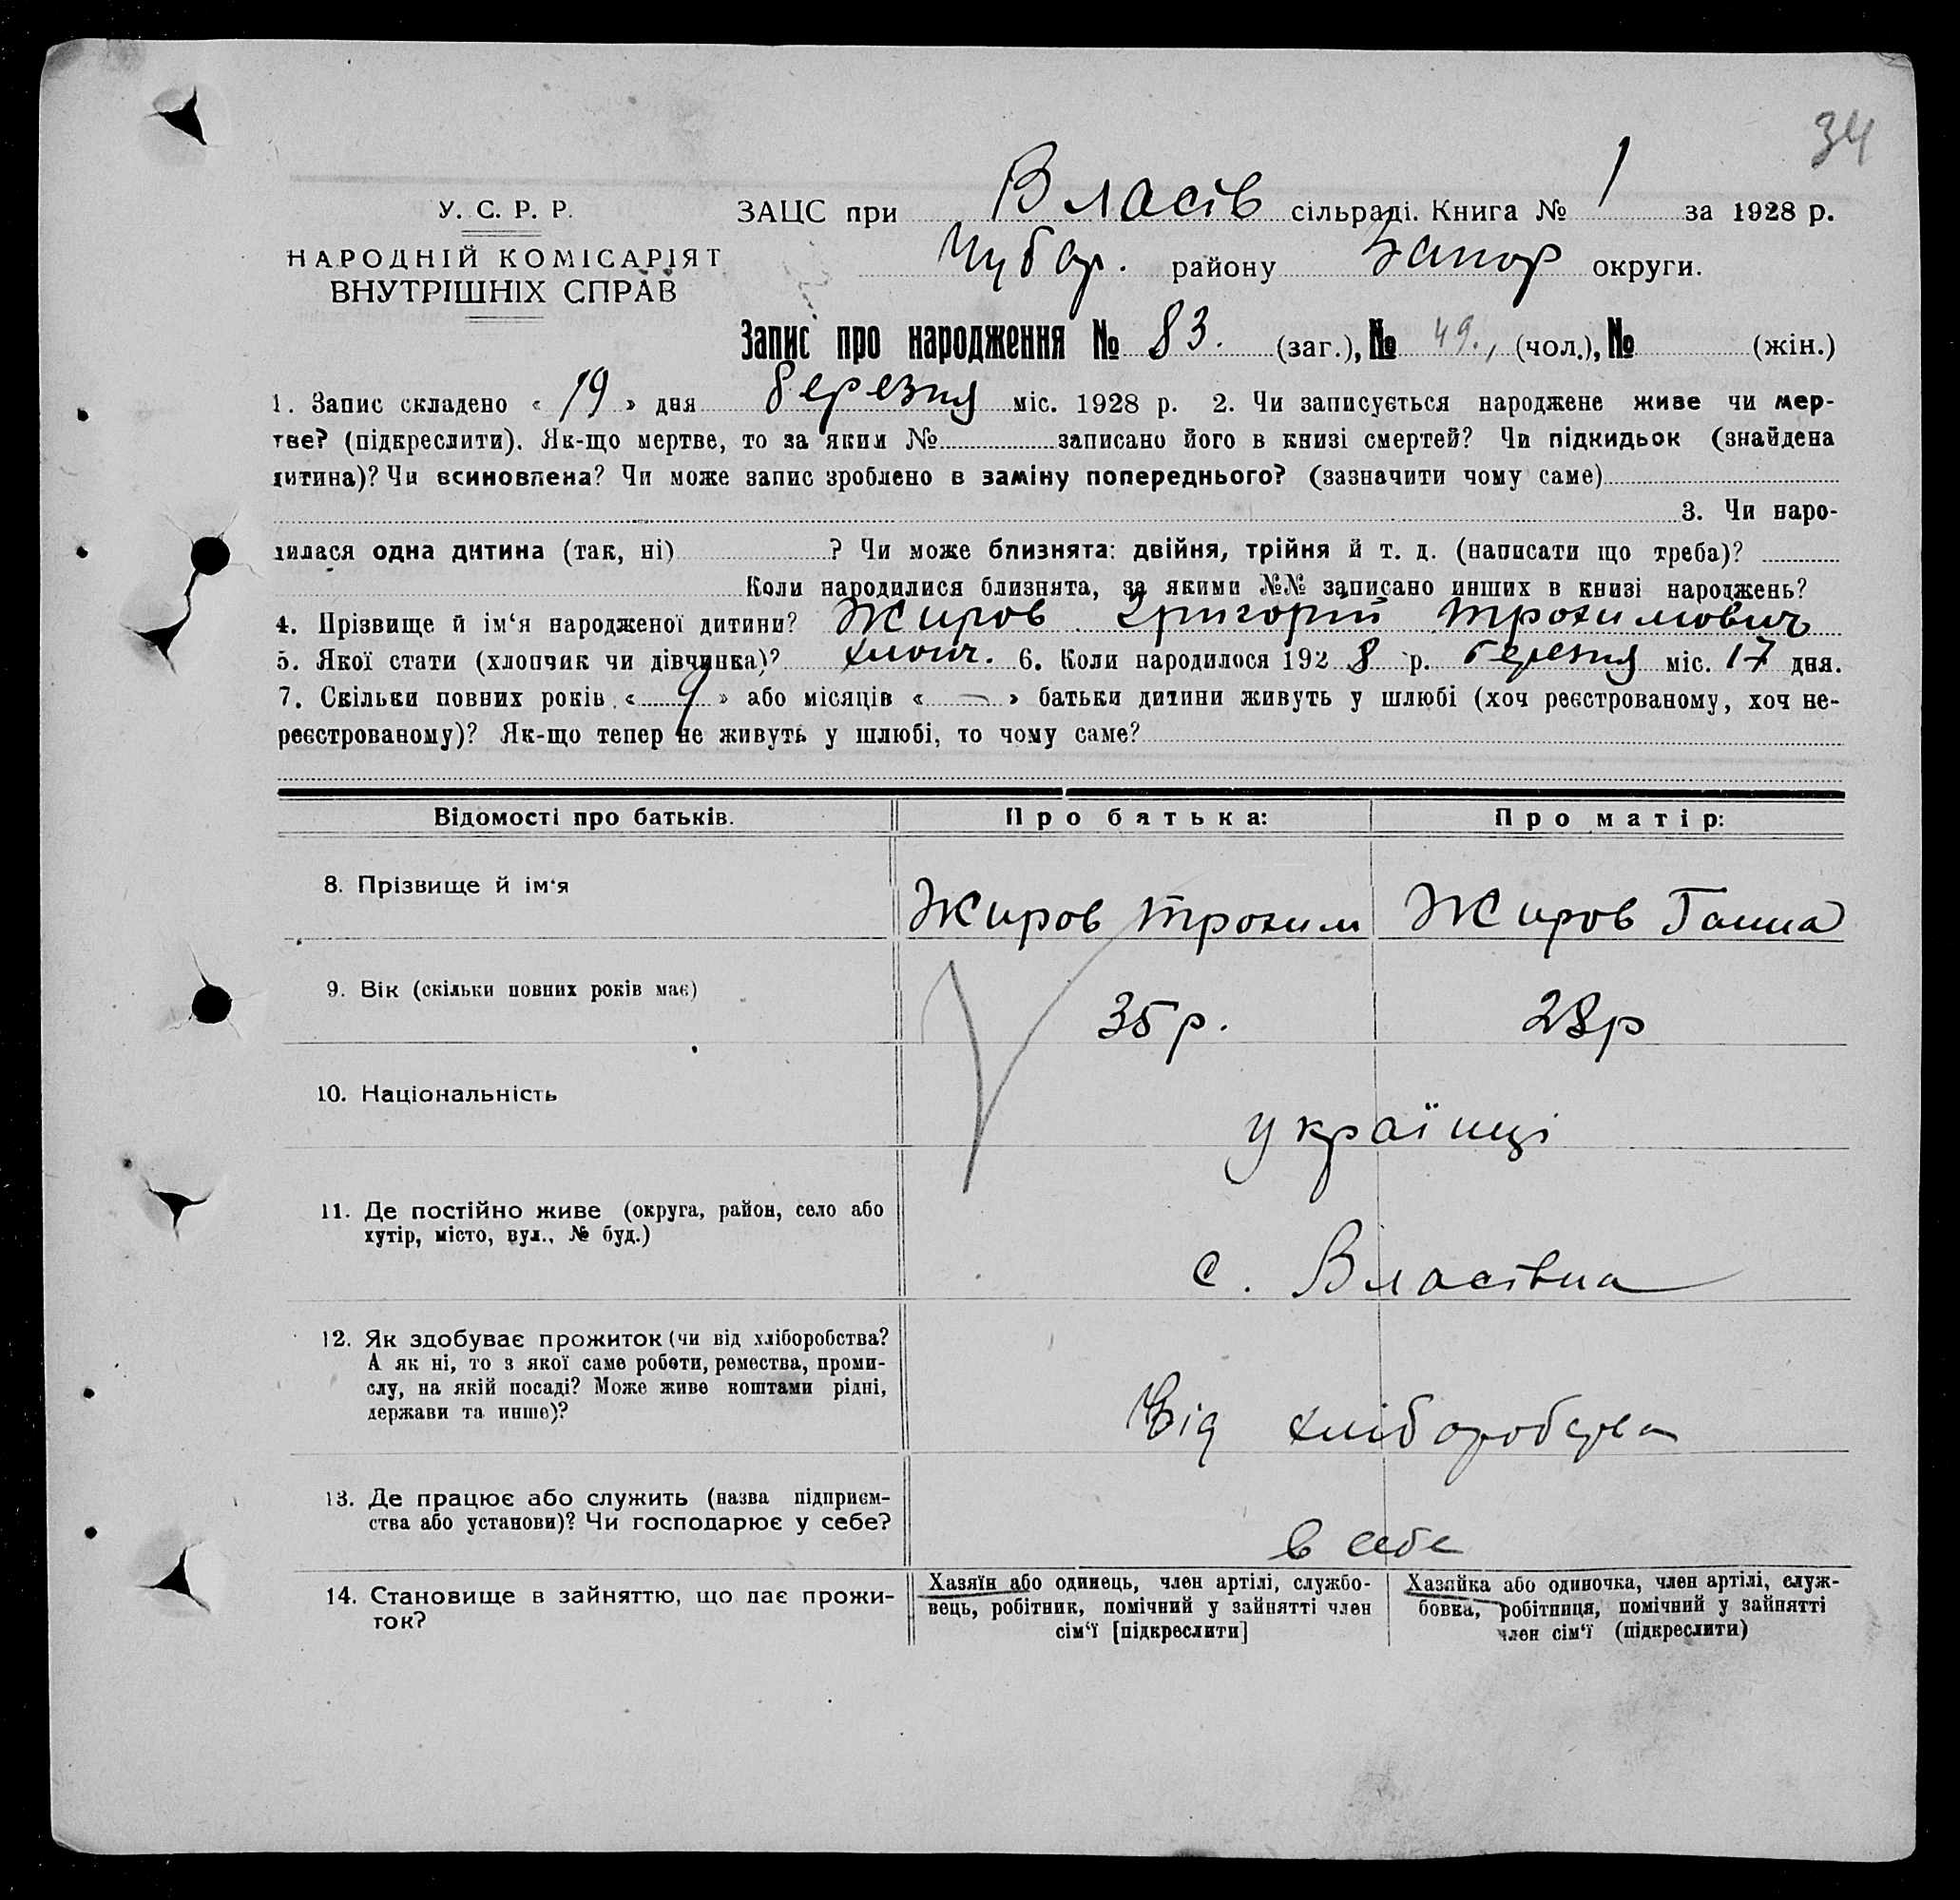 34
У. С. Р. Р.
НАРОДНІЙ КОМІСАРІЯТ
ВНУТРІШНІХ СПРАВ
ЗАЦС при Власів сільраді. Книга № 1 за 1928 р.
Чубар. району Запор округи.
Запис про народження № 83. (заг.), № 49., (чол.), № (жін.)
1. Запис складено « 19 » дня березня міс. 1928 р. 2. Чи записується народжене живе чи мер-
тве? (підкреслити). Як-що мертве, то за яким № записано його в книзі смертей? Чи підкидьок (знайдена
дитина)? Чи всиновлена? Чи може запис зроблено в заміну попереднього? (зазначити чому саме)
3. Чи наро-
дилася одна дитина (так, ні) ? Чи може близнята: двійня, трійня й т. д. (написати що треба)?
Коли народилися близнята, за якими №№ записано инших в книзі народжень?
4. Прізвище й ім‘я народженої дитини? Жиров Григорій Трохимович
5. Якої стати (хлопчик чи дівчинка)? хлопч. 6. Коли народилося 192 8 р. березня міс. 17 дня.
7. Скільки повних років « 9 » або місяців « — » батьки дитини живуть у шлюбі (хоч реєстрованому, хоч не-
реєстрованому)? Як-що тепер не живуть у шлюбі, то чому саме?
Відомості про батьків. Про батька: Про матір:
8. Прізвище й ім‘я Жиров Трохим Жиров Ганна
9. Вік (скільки повних років має) 35 р. 28 р
10. Національність українці
11. Де постійно живе (округа, район, село або
хутір, місто, вул., № буд.)
с. Власівка
12. Як здобуває прожиток (чи від хліборобства?
А як ні, то з якої саме роботи, ремества, проми-
слу, на якій посаді? Може живе коштами рідні,
держави та инше)?
Від хліборобства
13. Де працює або служить (назва підприєм-
ства або установи)? Чи господарює у себе?
в себе
14. Становище в зайняттю, що дає прожи-
ток?
Хазяїн або одинець, член артілі, службо-
вець, робітник, помічний у зайнятті член
сім‘ї [підкреслити]
Хазяйка або одиночка, член артілі, служ-
бовка, робітниця, помічний у зайнятті
член сім‘ї (підкреслити)